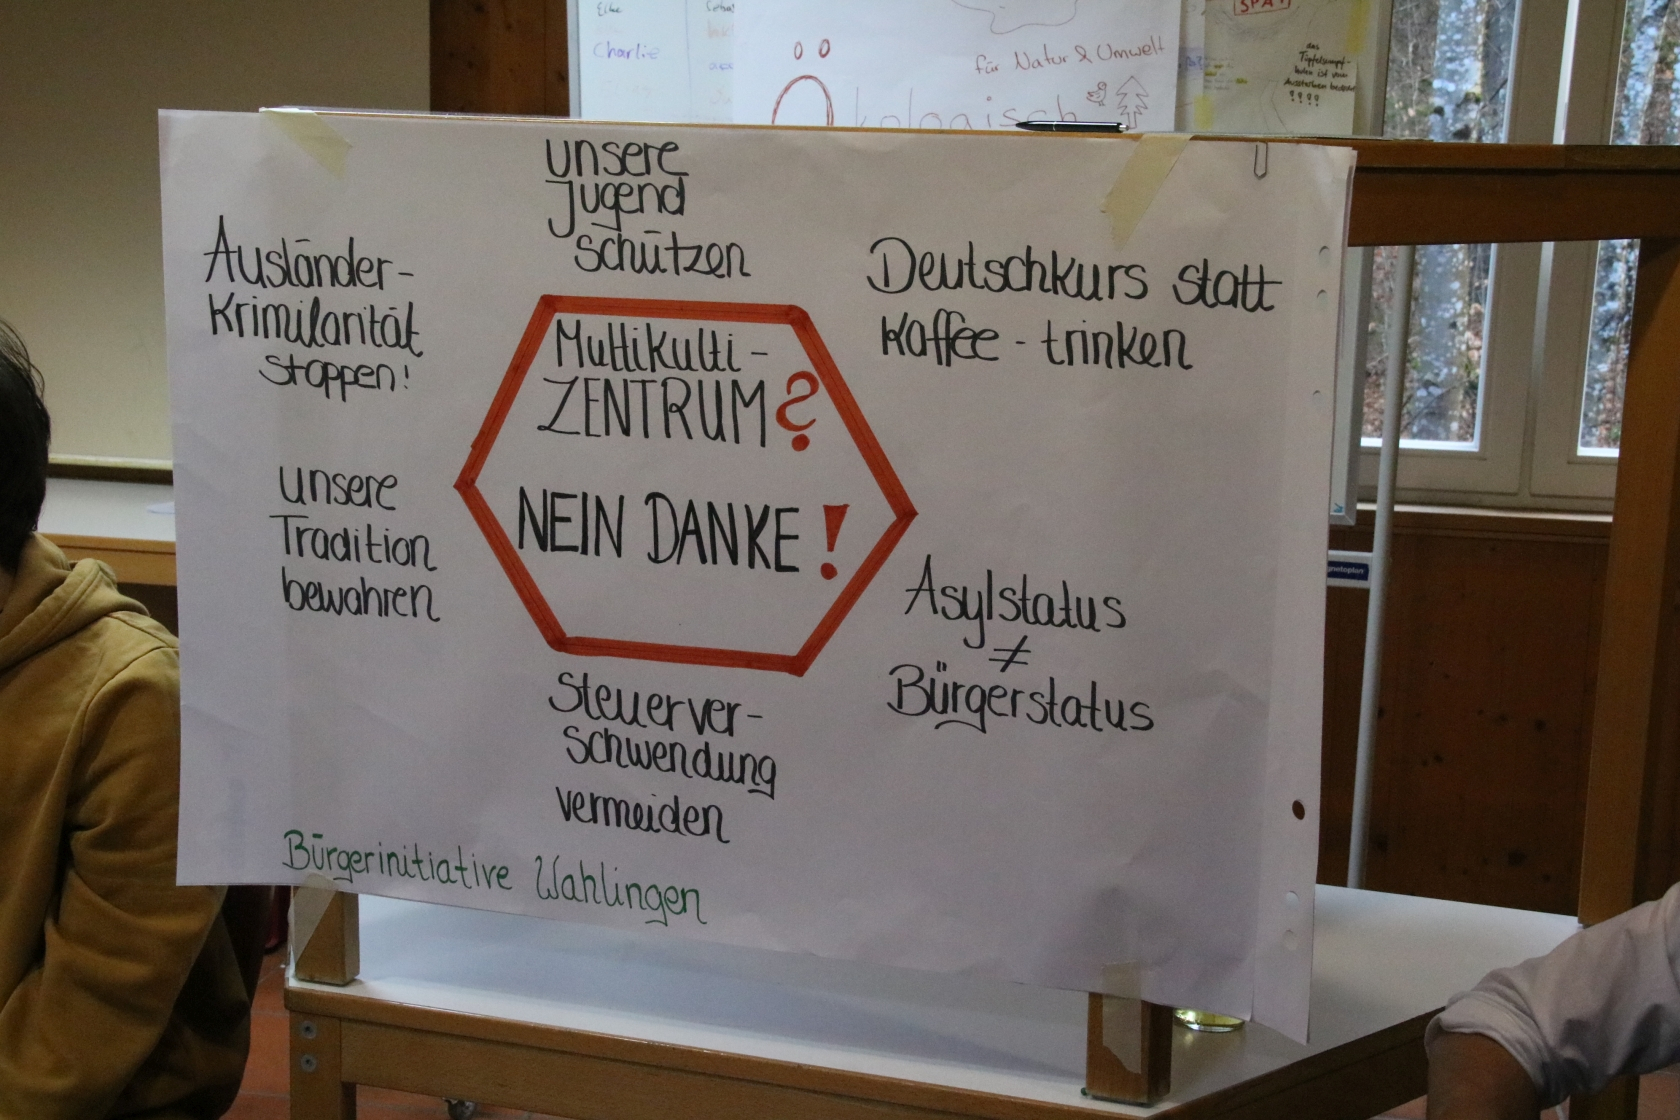 Eike
Charlie
für Natur & Umwelt
Ökologisch
SPAT
das
????
unsere
Jugend
schützen
Ausländer-
Krimilarität
stoppen!
Deutschkurs statt
Kaffee - trinken
Multikulti -
ZENTRUM?
NEIN DANKE!
unsere
Tradition
bewahren
Asylstatus
≠
Bürgerstatus
Steuerver-
schwendung
vermeiden
Bürgerinitiative Wahlingen
magnetoplan